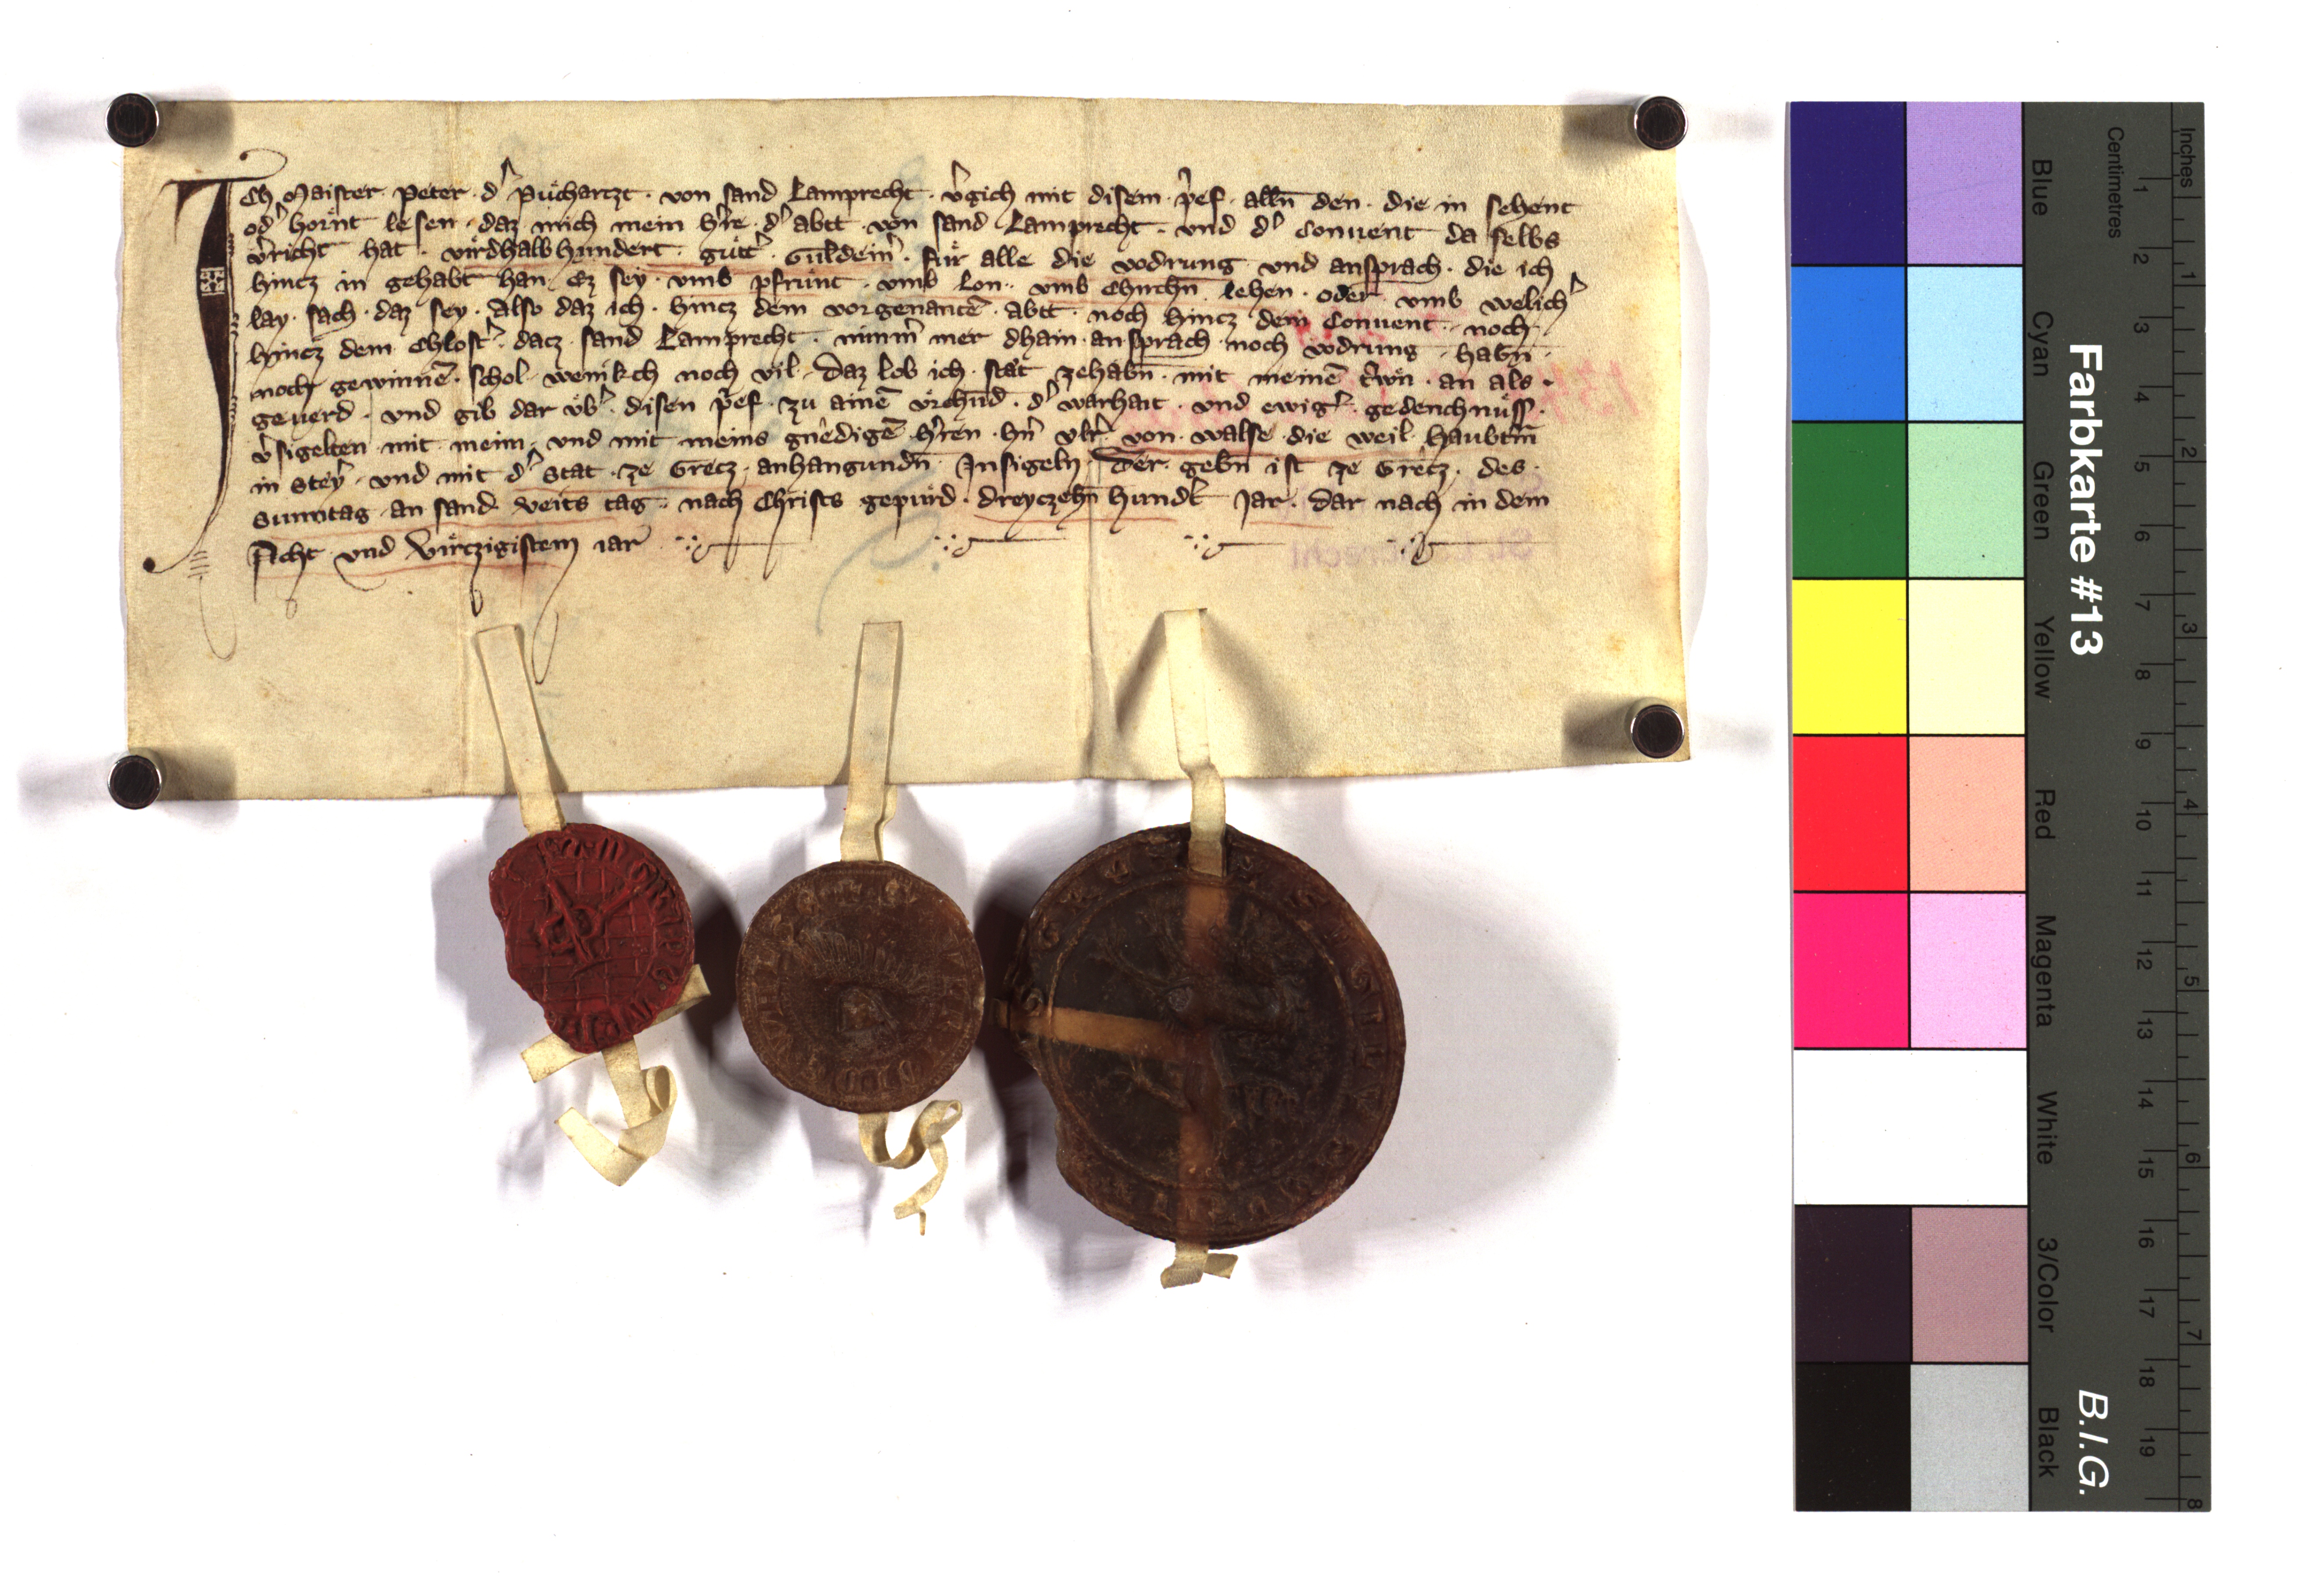 Ich Maister Peter d' Puͤchartzt von sand Lamprecht v'gich mit disem p'ef alln̄ den die in sehent
od' hoͤrnt lesen daz mich mein h're d' abtt von sand Lamprecht vnd d' Conuent da selbs
v'richt hat virdhalbhundert guͤtt' Guldein' fuͤr alle die vodrung vnd ansprach die ich
hincz in gehabt han Ez sey vmb pfruͤnt vmb lon vmb Chirchn̄ lehen oder vmb welich'
lay sach daz sey Also daz ich hincz dem vorgenantē abtt noch hincz dem Conuent noch
hincz dem Chlost' dacz sand Lamprecht nimm' mer dhain ansprach noch vodrung habn̄
noch gewinnē schol wenikch noch vil Daz lob ich staͤt zehabn̄ mit meinē t'iwn an als
geuerd vnd gib dar vͤb' disen p'ef zu ainē vrchūd d' warhait vnd ewig' gedenchnuͤss
v'sigelten mit meim vnd mit meins gnedigē h'ren h'n vlr' von walse die weil haubtm̄
in Stey' vnd mit d' Stat ze Gretz anhangundn̄ Insigeln Der gebn̄ ist ze Gretz des
Sunntag an sand veits tag nach Christs gepuͤrd dreyczehn̄ hund't Jar dar nach in dem
Acht vnd virczigistem iar
Farbkarte #13
B.I.G.
Blue
Cyan
Green
Yellow
Red
Magenta
White
3/Color
Black
Centimetres
1 2 3 4 5 6 7 8 9 10 11 12 13 14 15 16 17 18 19
Inches
1 2 3 4 5 6 7 8